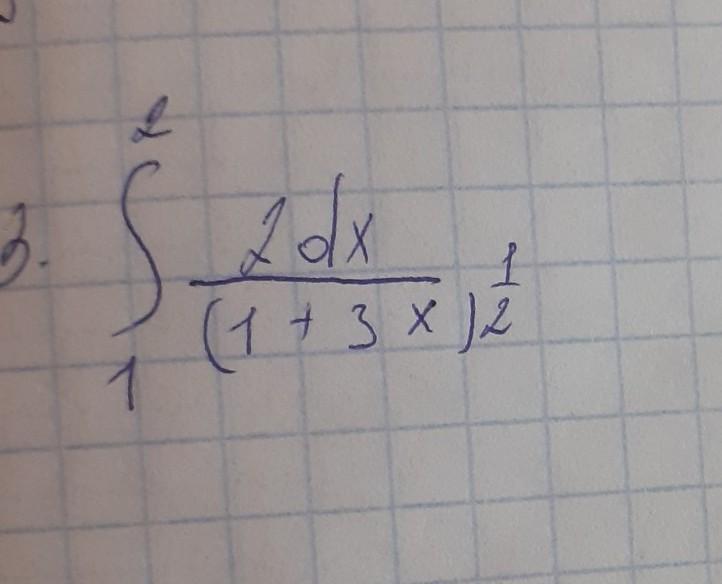 3. ∫₁² 2dx / (1 + 3x)^(1/2)